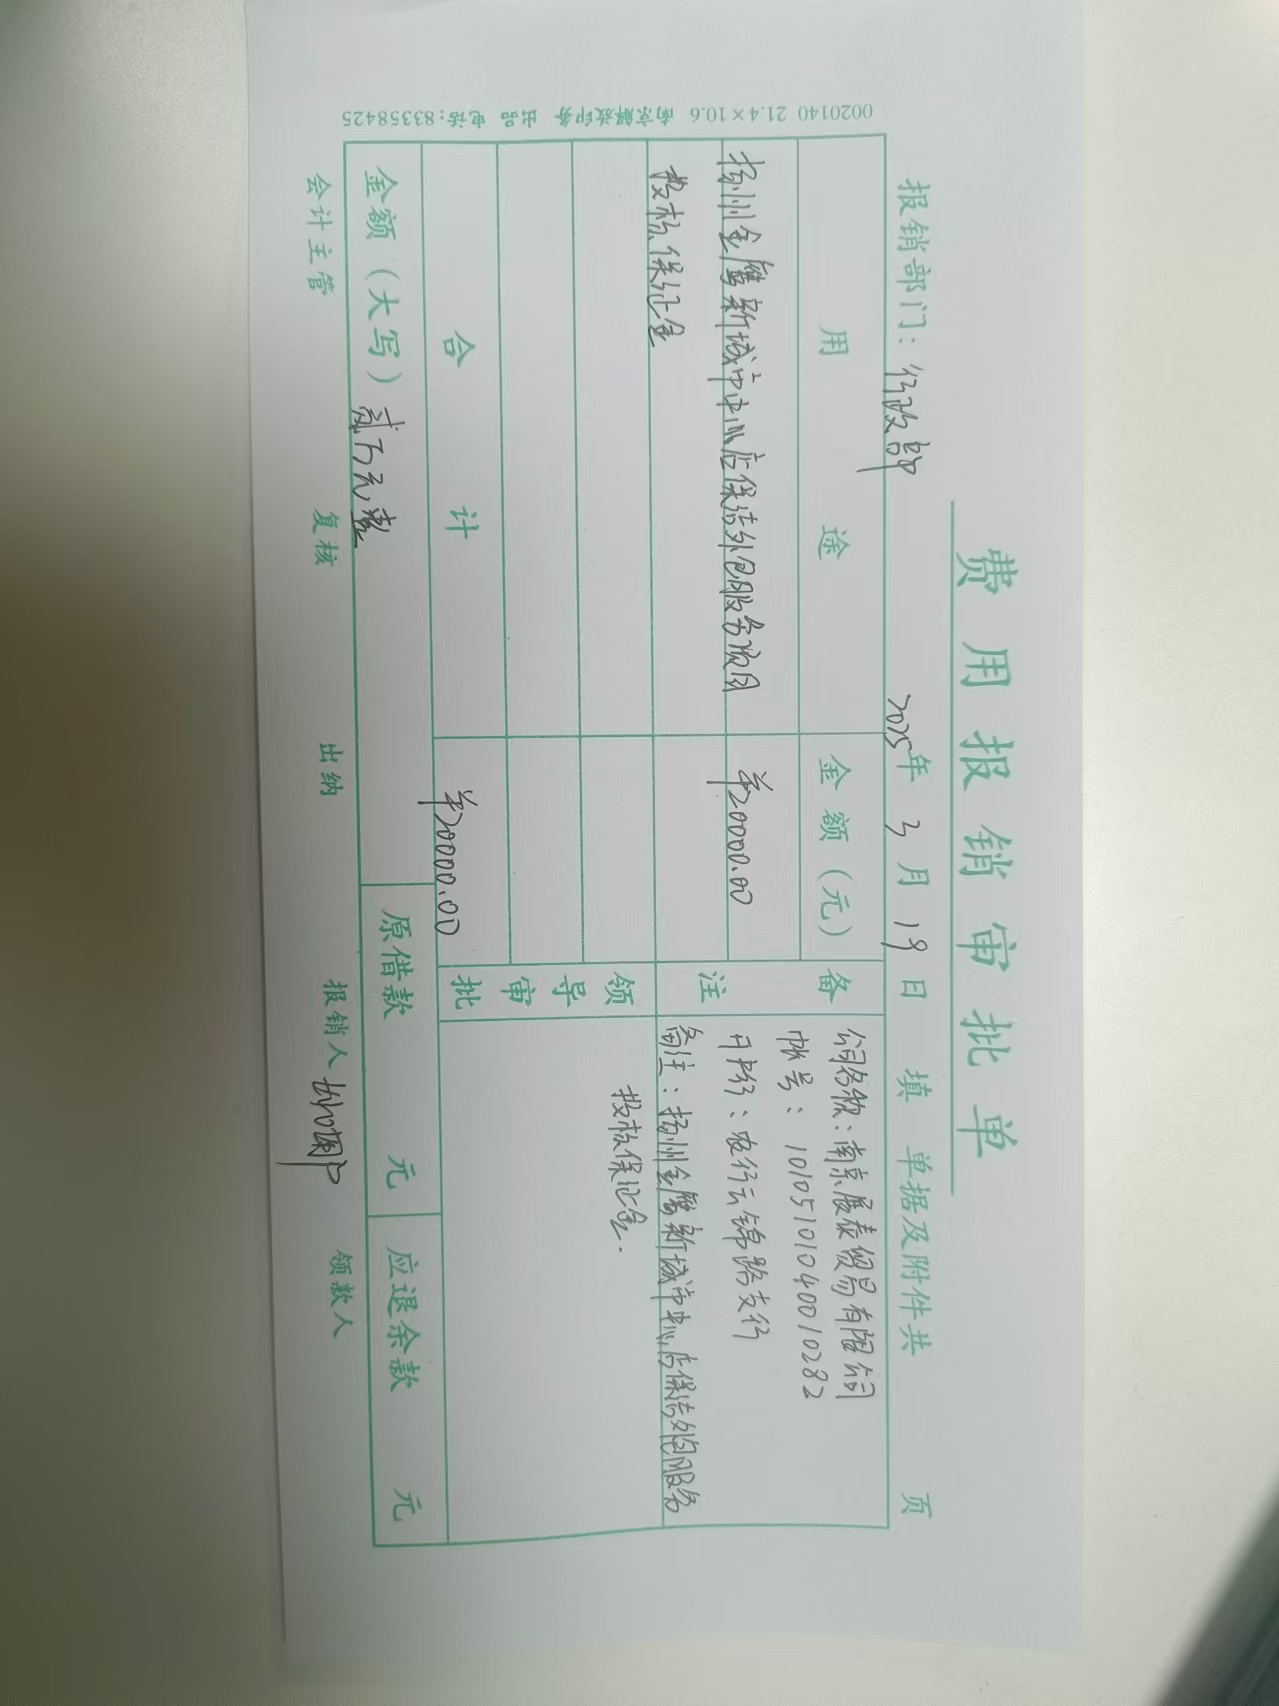 费用报销审批单
报销部门：行政部 2025年 3月 19日 填 单据及附件共 页
用途 金额（元） 备注
扬州金鹰新城市中心店保洁外包服务项目 ¥20000.00
投标保证金
公司名称：南京展泰贸易有限公司
帐号：10105101040010282
开户行：农行云锦路支行
备注：扬州金鹰新城市中心店保洁外包服务
投标保证金.
领导审批
合计 ¥20000.00
金额（大写）贰万元整 原借款 元 应退余款 元
会计主管 复核 出纳 报销人 领款人
0020140 21.4×10.6 南京解放印务 出品 电话:83358425